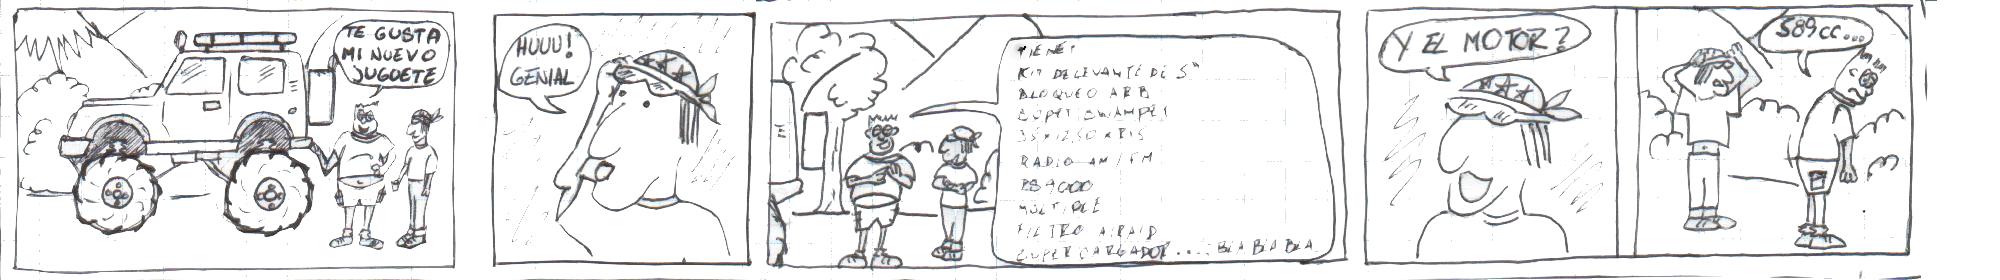 TE GUSTA
MI NUEVO
JUGUETE
HUUU!
GENIAL
TIENE:
KIT DE LEVANTE DE 5"
BLOQUEO ARB
SUPER SWAMPER
35x12.50xR15
RADIO AM/FM
RS9000
MULTIPLE
FILTRO AIRAID
SUPERCARGADOR.....BLA BLA BLA
Y EL MOTOR?
589CC...